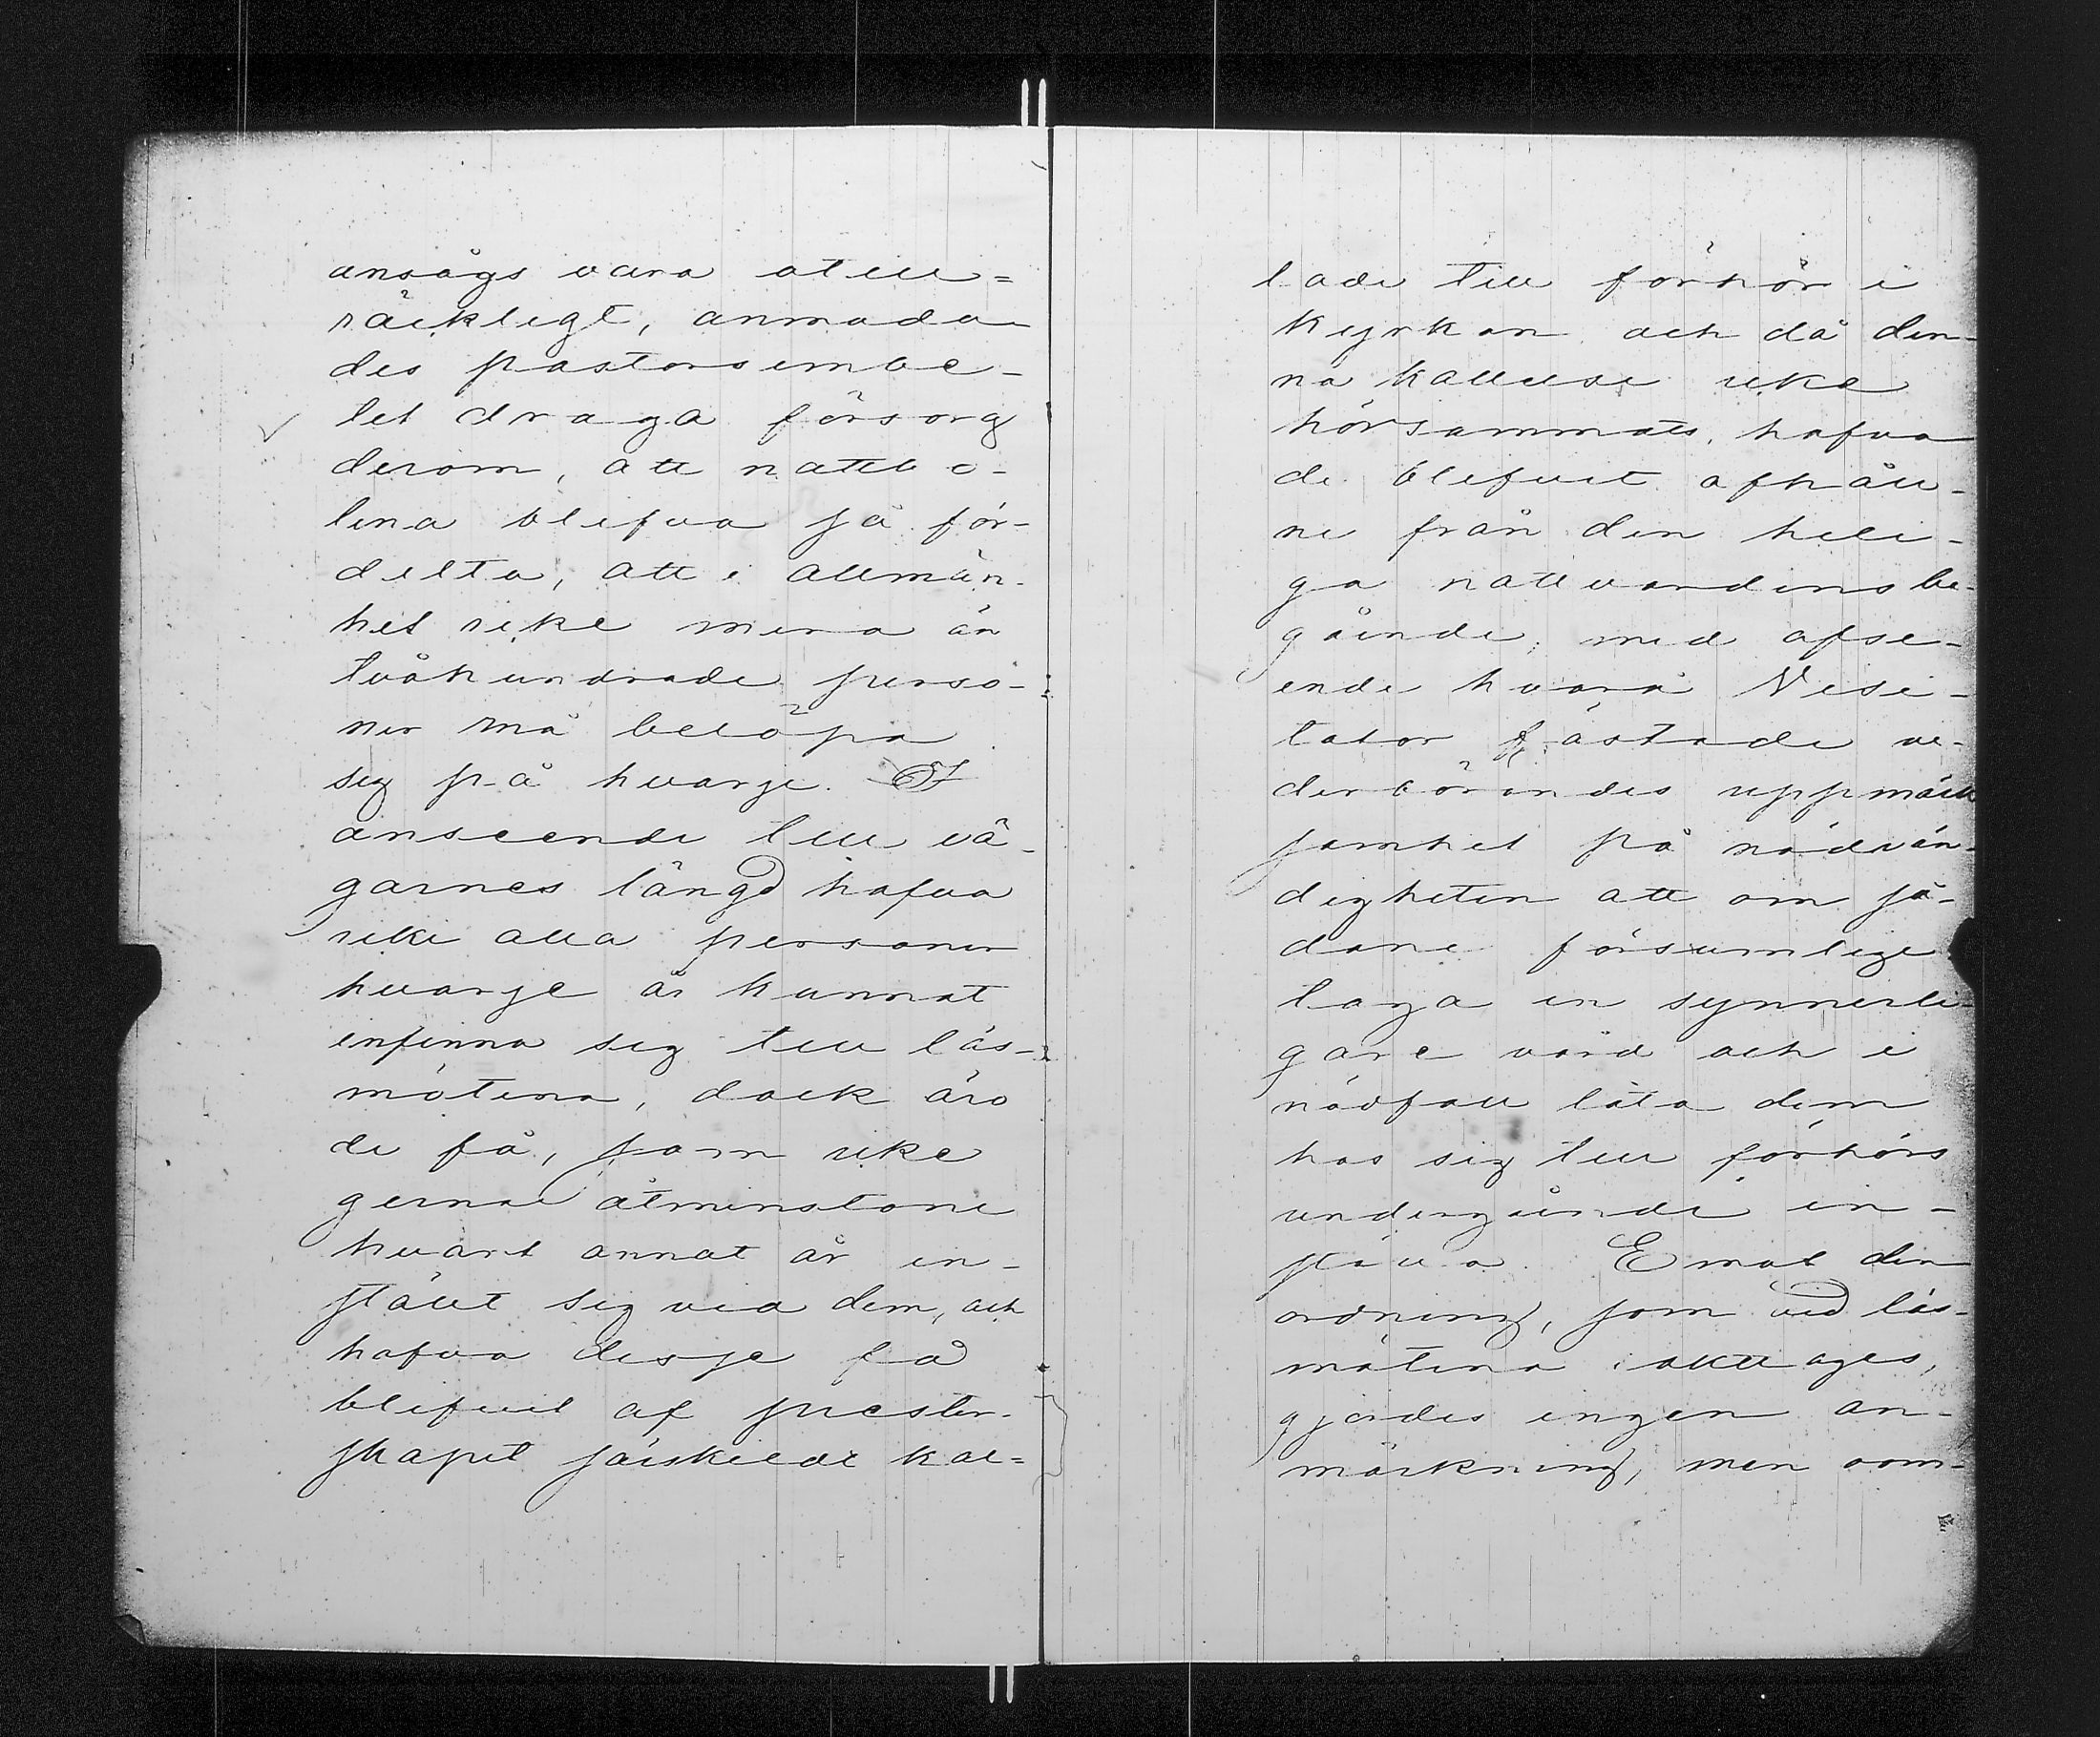 ansågs vara otill=
räckligt, anmoda-
des pastorsembe-
tet draga försorg
derom, att nattvo-
lena blifva så för-
delta, att i allmän-
het icke mera än
tvåhundrade perso-
ner må belöpa
sig på hvarje. I
anseende till vä-
garnes längd hafva
icke alla personer
hvarje år kunnat
infinna sig till läs-
mötena, dock äro
de få, som icke
gerna åtminstone
hvart annat år in-
stält sig vid dem, och
hafva desse få
blifvit af prester-
skapet särskildt kal=
lade till förhör i
kyrkan och då den-
na kallelse icke
hörsammats, hafva
de blifvit afhåll-
ne från den heli-
ga nattvardens be-
gående, med afse-
ende hvarå Visi-
tator fästade ve-
derbörandes uppmärk
samhet på nödvän-
digheten att om så-
dane försumlige
taga en synnerli-
gare vård och i
nödfall låta dem
hos sig till förhörs
undergående in-
ställa. Emot den
ordning, som vid läs-
mötena iakttages,
gjordes ingen an-
märkning, men om-